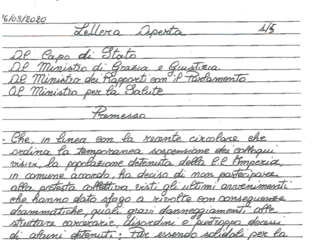 16/03/2020
Lettera Aperta
1/5
Al Capo di Stato
Al Ministro di Grazia e Giustizia
Al Ministro dei Rapporti con il Parlamento
Al Ministro per la Salute
Premesso
Che, in linea con la recente circolare che
ordina la temporanea sospensione dei colloqui
visivi, la popolazione detenuta della C.C. Imperia,
in comune accordo, ha deciso di non partecipare
alla protesta collettiva visti gli ultimi avvenimenti
che hanno dato sfogo a rivolte con conseguenze
drammatiche, quali gravi danneggiamenti alle
strutture carcerarie, disordini e purtroppo decessi
di alcuni detenuti; Pur essendo solidali per la